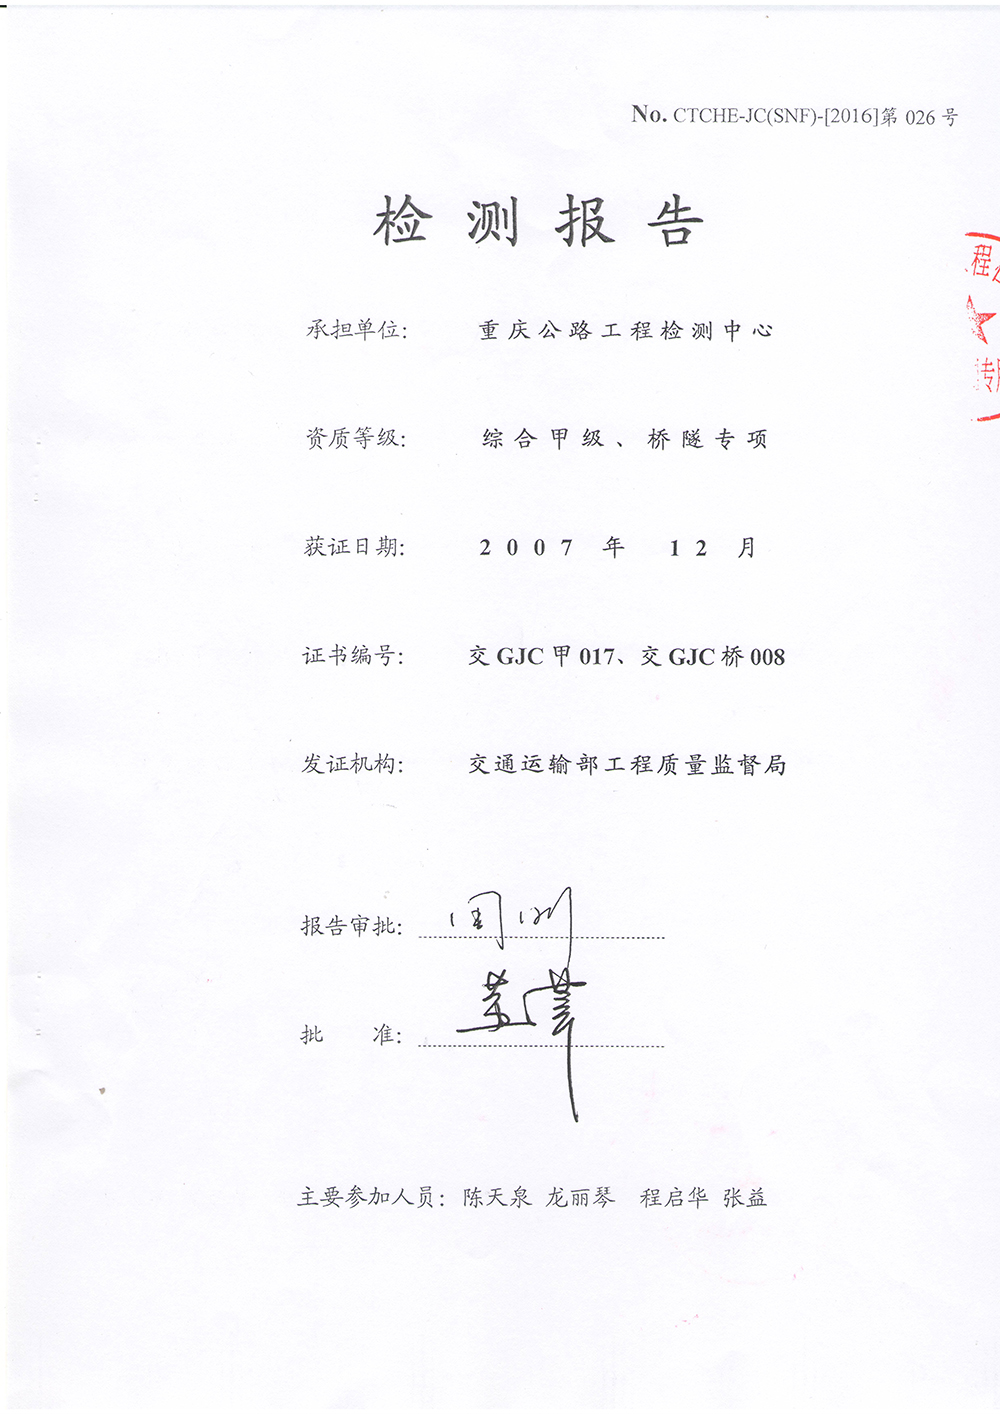 No. CTCHE-JC(SNF)-[2016]第 026 号
检测报告
程
专用
承担单位: 重庆公路工程检测中心
资质等级: 综合甲级、桥隧专项
获证日期: 2007 年 12 月
证书编号: 交 GJC 甲 017、交 GJC 桥 008
发证机构: 交通运输部工程质量监督局
报告审批:
批 准:
主要参加人员: 陈天泉 龙丽琴 程启华 张益